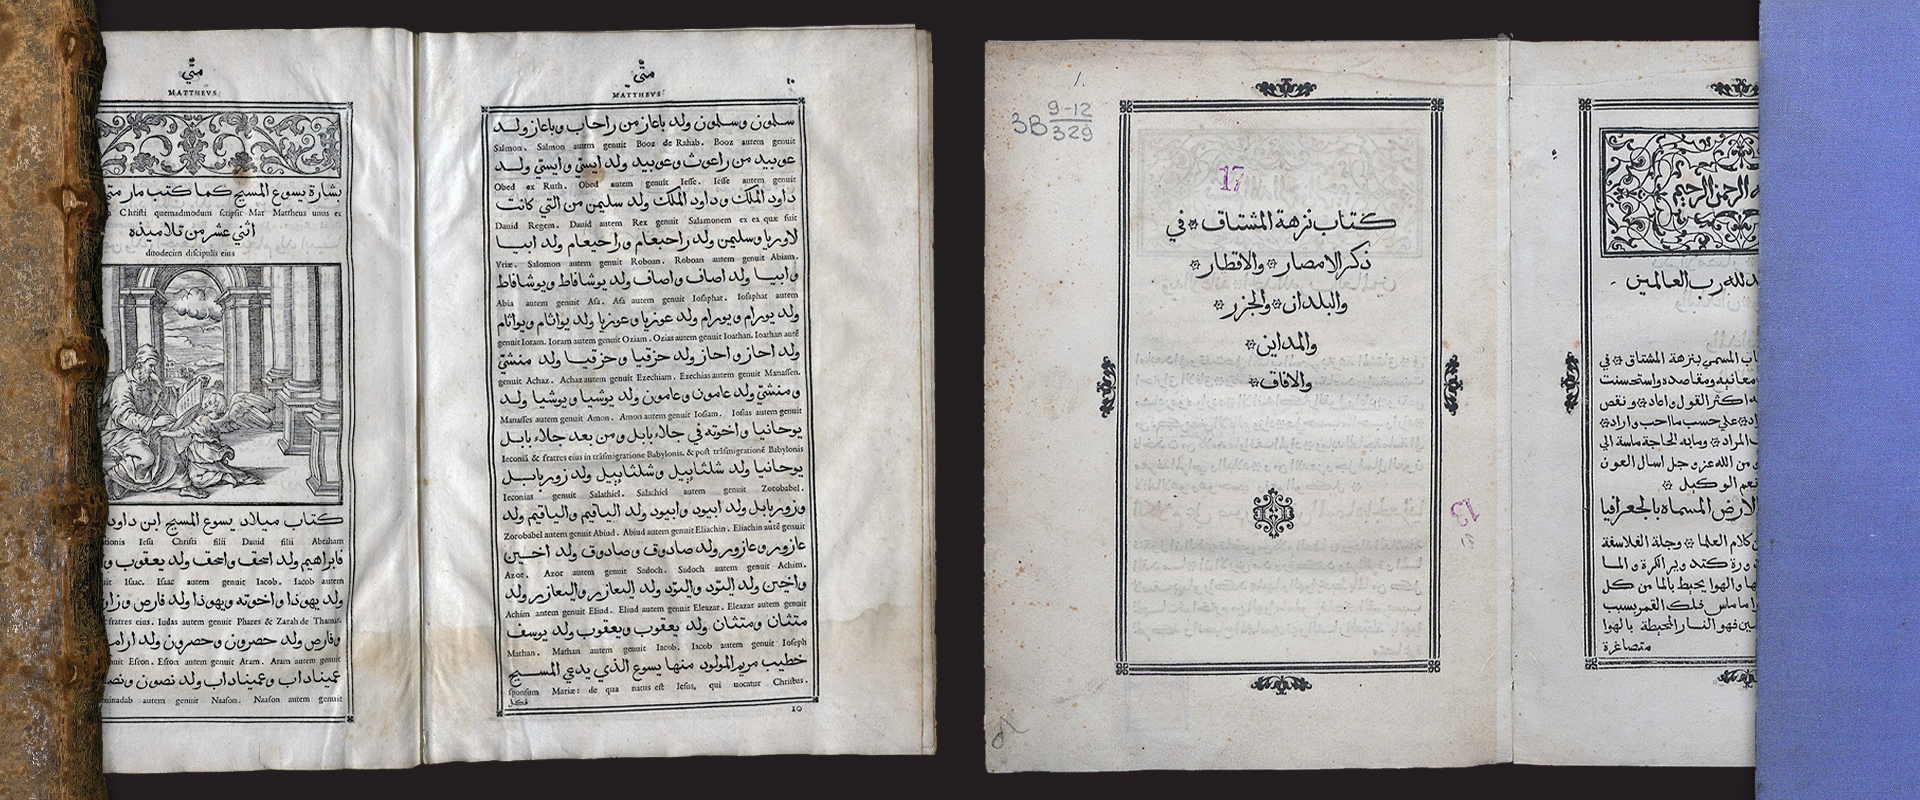 متّي
MATTHEVS
بشارة يسوع المسيح كما كتب مار متي
Christi quemadmodum scripsit Mar Mattheus unus ex
اثني عشر من تلاميذه
duodecim discipulis eius
كتاب ميلاد يسوع المسيح ابن داود
Iesu Christi filii Dauid filii Abraham
فابراهيم ولد اسحق واسحق ولد يعقوب
Isaac. Isaac autem genuit Iacob. Iacob autem
ولد يهوذا واخوته ويهوذا ولد فارص
fratres eius. Iudas autem genuit Phares & Zarah de Thamar.
وفارص ولد حصرون وحصرون ولد
Esron. Esron autem genuit Aram. Aram autem genuit
عميناداب وعميناداب ولد نصون
autem genuit Naason. Naason autem genuit
متّي
MATTHEVS
سلمون وسلمون ولد باعاز من راحاب وباعاز ولد
Salmon. Salmon autem genuit Booz de Rahab. Booz autem genuit
عوبيد من راعوث وعوبيد ولد ايستي وايستي ولد
Obed ex Ruth. Obed autem genuit Iesse. Iesse autem genuit
داود الملك وداود الملك ولد سليمن من التي كانت
Dauid Regem. Dauid autem Rex genuit Salamonem ex ea quæ fuit
لاوريا وسليمن ولد راحبعام وراحبعام ولد ابيا
Vriæ. Salomon autem genuit Roboan. Roboan autem genuit Abiam.
وابيا ولد اصاف واصاف ولد يوشافاط ويوشافاط
Abia autem genuit Asa. Asa autem genuit Iosaphat. Iosaphat autem
ولد يورام ويورام ولد عوزيا وعوزيا ولد يواثام ويواثام
genuit Ioram. Ioram autem genuit Oziam. Ozias autem genuit Ioathan. Ioathan autē
ولد احاز واحاز ولد حزقيا وحزقيا ولد منشي
genuit Achaz. Achaz autem genuit Ezechiam. Ezechias autem genuit Manassen.
ومنشي ولد عامون وعامون ولد يوشيا ويوشيا ولد
Manasses autem genuit Amon. Amon autem genuit Iosiam. Iosias autem genuit
يوحانيا واخوته في جلاء بابل ومن بعد جلاء بابل
Ieconiā & fratres eius in trāsmigratione Babylonis. & post trāsmigrationē Babylonis
يوحانيا ولد شلثايبل وشلثايبل ولد زوربابل
Ieconias genuit Salathiel. Salathiel autem genuit Zorobabel.
وزوربابل ولد ابيود وابيود ولد الياقيم والياقيم ولد
Zorobabel autem genuit Abiud. Abiud autem genuit Eliachin. Eliachin autē genuit
عازور وعازور ولد صادوق وصادوق ولد اخين
Azor. Azor autem genuit Sadoch. Sadoch autem genuit Achim.
واخين ولد اليود واليود ولد اليعازر واليعازر ولد
Achim autem genuit Eliud. Eliud autem genuit Eleazar. Eleazar autem genuit
متثان ومتثان ولد يعقوب ويعقوب ولد يوسف
Mathan. Mathan autem genuit Iacob. Iacob autem genuit Ioseph
خطيب مريم المولود منها يسوع الذي يدعي المسيح
sponsum Mariæ: de qua natus est Iesus, qui uocatur Christus.
فكل
10
1.
3B 9-12
329
17
كتاب نزهة المشتاق في
ذكر الامصار والاقطار
والبلدان والجزر
والمداين
والافاق
13
الرحمن الرحيم
رب العالمين
المسمي بنزهة المشتاق في
معانيه ومقاصده واستحسنت
اكثر القول واعاد ونقص
علي حسب ما احب واراد
المراد وما به الحاجة ماسة الي
من الله عز وجل اسال العون
نعم الوكيل
الارض المسماه بالجعرافيا
كلام العلما وجلة الفلاسفة
كل
فلك القمر بسبب
فهو النار المحيطة بالهوا
متصاغرة